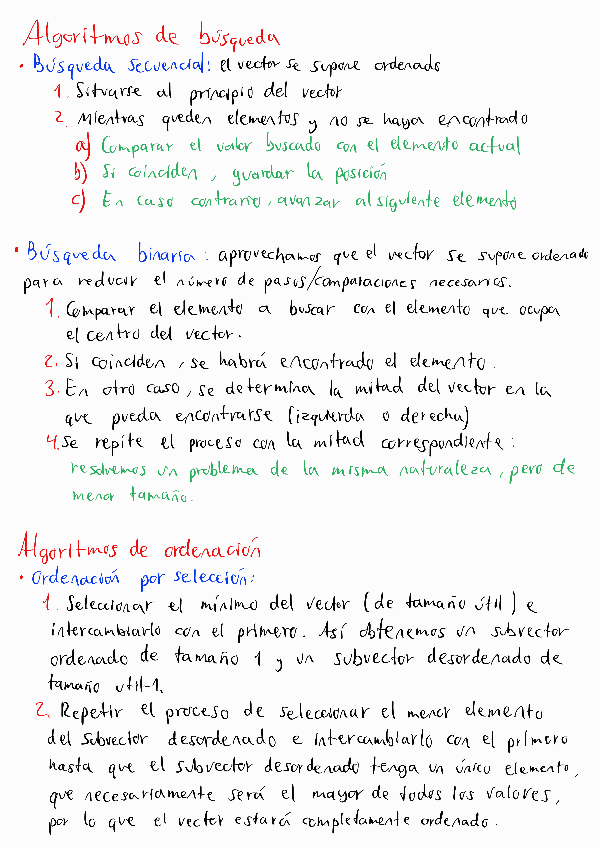 Algoritmos de búsqueda
• Búsqueda secuencial: el vector se supone ordenado
1. Situarse al principio del vector
2. Mientras queden elementos y no se haya encontrado
a) Comparar el valor buscado con el elemento actual
b) Si coinciden, guardar la posición
c) En caso contrario, avanzar al siguiente elemento
• Búsqueda binaria: aprovechamos que el vector se supone ordenado
para reducir el número de pasos/comparaciones necesarios.
1. Comparar el elemento a buscar con el elemento que ocupa
el centro del vector.
2. Si coinciden, se habrá encontrado el elemento.
3. En otro caso, se determina la mitad del vector en la
que pueda encontrarse (izquierda o derecha)
4. Se repite el proceso con la mitad correspondiente:
resolvemos un problema de la misma naturaleza, pero de
menor tamaño.
Algoritmos de ordenación
• Ordenación por selección:
1. Seleccionar el mínimo del vector (de tamaño útil) e
intercambiarlo con el primero. Así obtenemos un subvector
ordenado de tamaño 1 y un subvector desordenado de
tamaño util-1.
2. Repetir el proceso de seleccionar el menor elemento
del subvector desordenado e intercambiarlo con el primero
hasta que el subvector desordenado tenga un único elemento,
que necesariamente será el mayor de todos los valores,
por lo que el vector estará completamente ordenado.